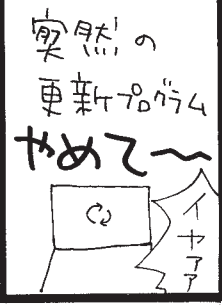 突然の
更新プログラム
やめて〜
イヤァァ